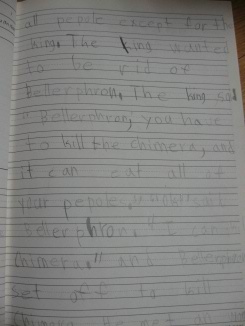 all pepole except for th
king. The king wanted
to be rid of
bellerphron. The king sad
"Bellerphron, you have
to kill the chimera, and
it can eat all of
your pepole."
Bellerphron. "I
chimera." and Bellerphr
set off to kill